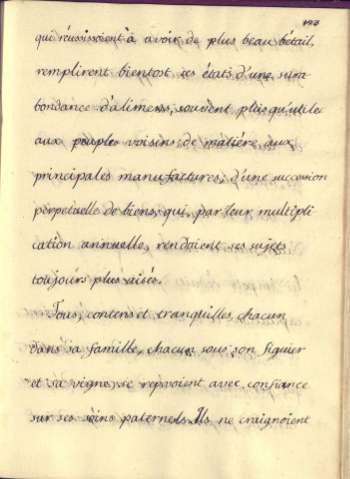 193
qui réussissoient à avoir de plus beau bétail,
remplirent bientost ses états d'une sura
bondance d'alimens, souvent plus qu'utile
aux peuples voisins; de matiére aux
principales manufactures; d'une succession
perpetuelle de biens, qui, par leur multipli
cation annuelle, rendoient ses sujets
toujours plus aisés.
Tous, contens et tranquilles, chacun
dans sa famille, chacun sous son figuier
et sa vigne, se reposoient avec confiance
sur ses soins paternels. Ils ne craignoient